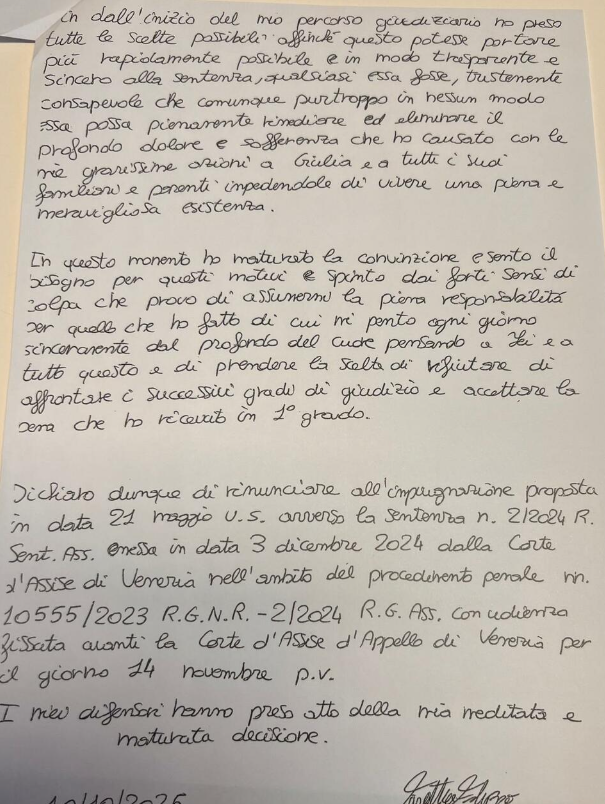 in dall'inizio del mio percorso giudiziario ho preso
tutte le scelte possibili affinché questo potesse portare
più rapidamente possibile e in modo trasparente e
sincero alla sentenza, qualsiasi essa fosse, tristemente
consapevole che comunque purtroppo in nessun modo
essa possa pienamente rimediare ed eliminare il
profondo dolore e sofferenza che ho causato con le
mie gravissime azioni a Giulia e a tutti i suoi
familiari e parenti impedendole di vivere una piena e
meravigliosa esistenza.
In questo momento ho maturato la convinzione e sento il
bisogno per questi motivi e spinto dai forti sensi di
colpa che provo di assumermi la piena responsabilità
per quello che ho fatto di cui mi pento ogni giorno
sinceramente dal profondo del cuore pensando a lei e a
tutto questo e di prendere la scelta di rifiutare di
affrontare i successivi gradi di giudizio e accettare la
pena che ho ricevuto in 1° grado.
Dichiaro dunque di rinunciare all'impugnazione proposta
in data 21 maggio u.s. avverso la sentenza n. 2/2024 R.
Sent. Ass. emessa in data 3 dicembre 2024 dalla Corte
d'Assise di Venezia nell'ambito del procedimento penale nn.
10555/2023 R.G.N.R. - 2/2024 R.G. Ass. con udienza
fissata avanti la Corte d'Assise d'Appello di Venezia per
il giorno 14 novembre p.v.
I miei difensori hanno preso atto della mia meditata e
maturata decisione.
10/10/2025